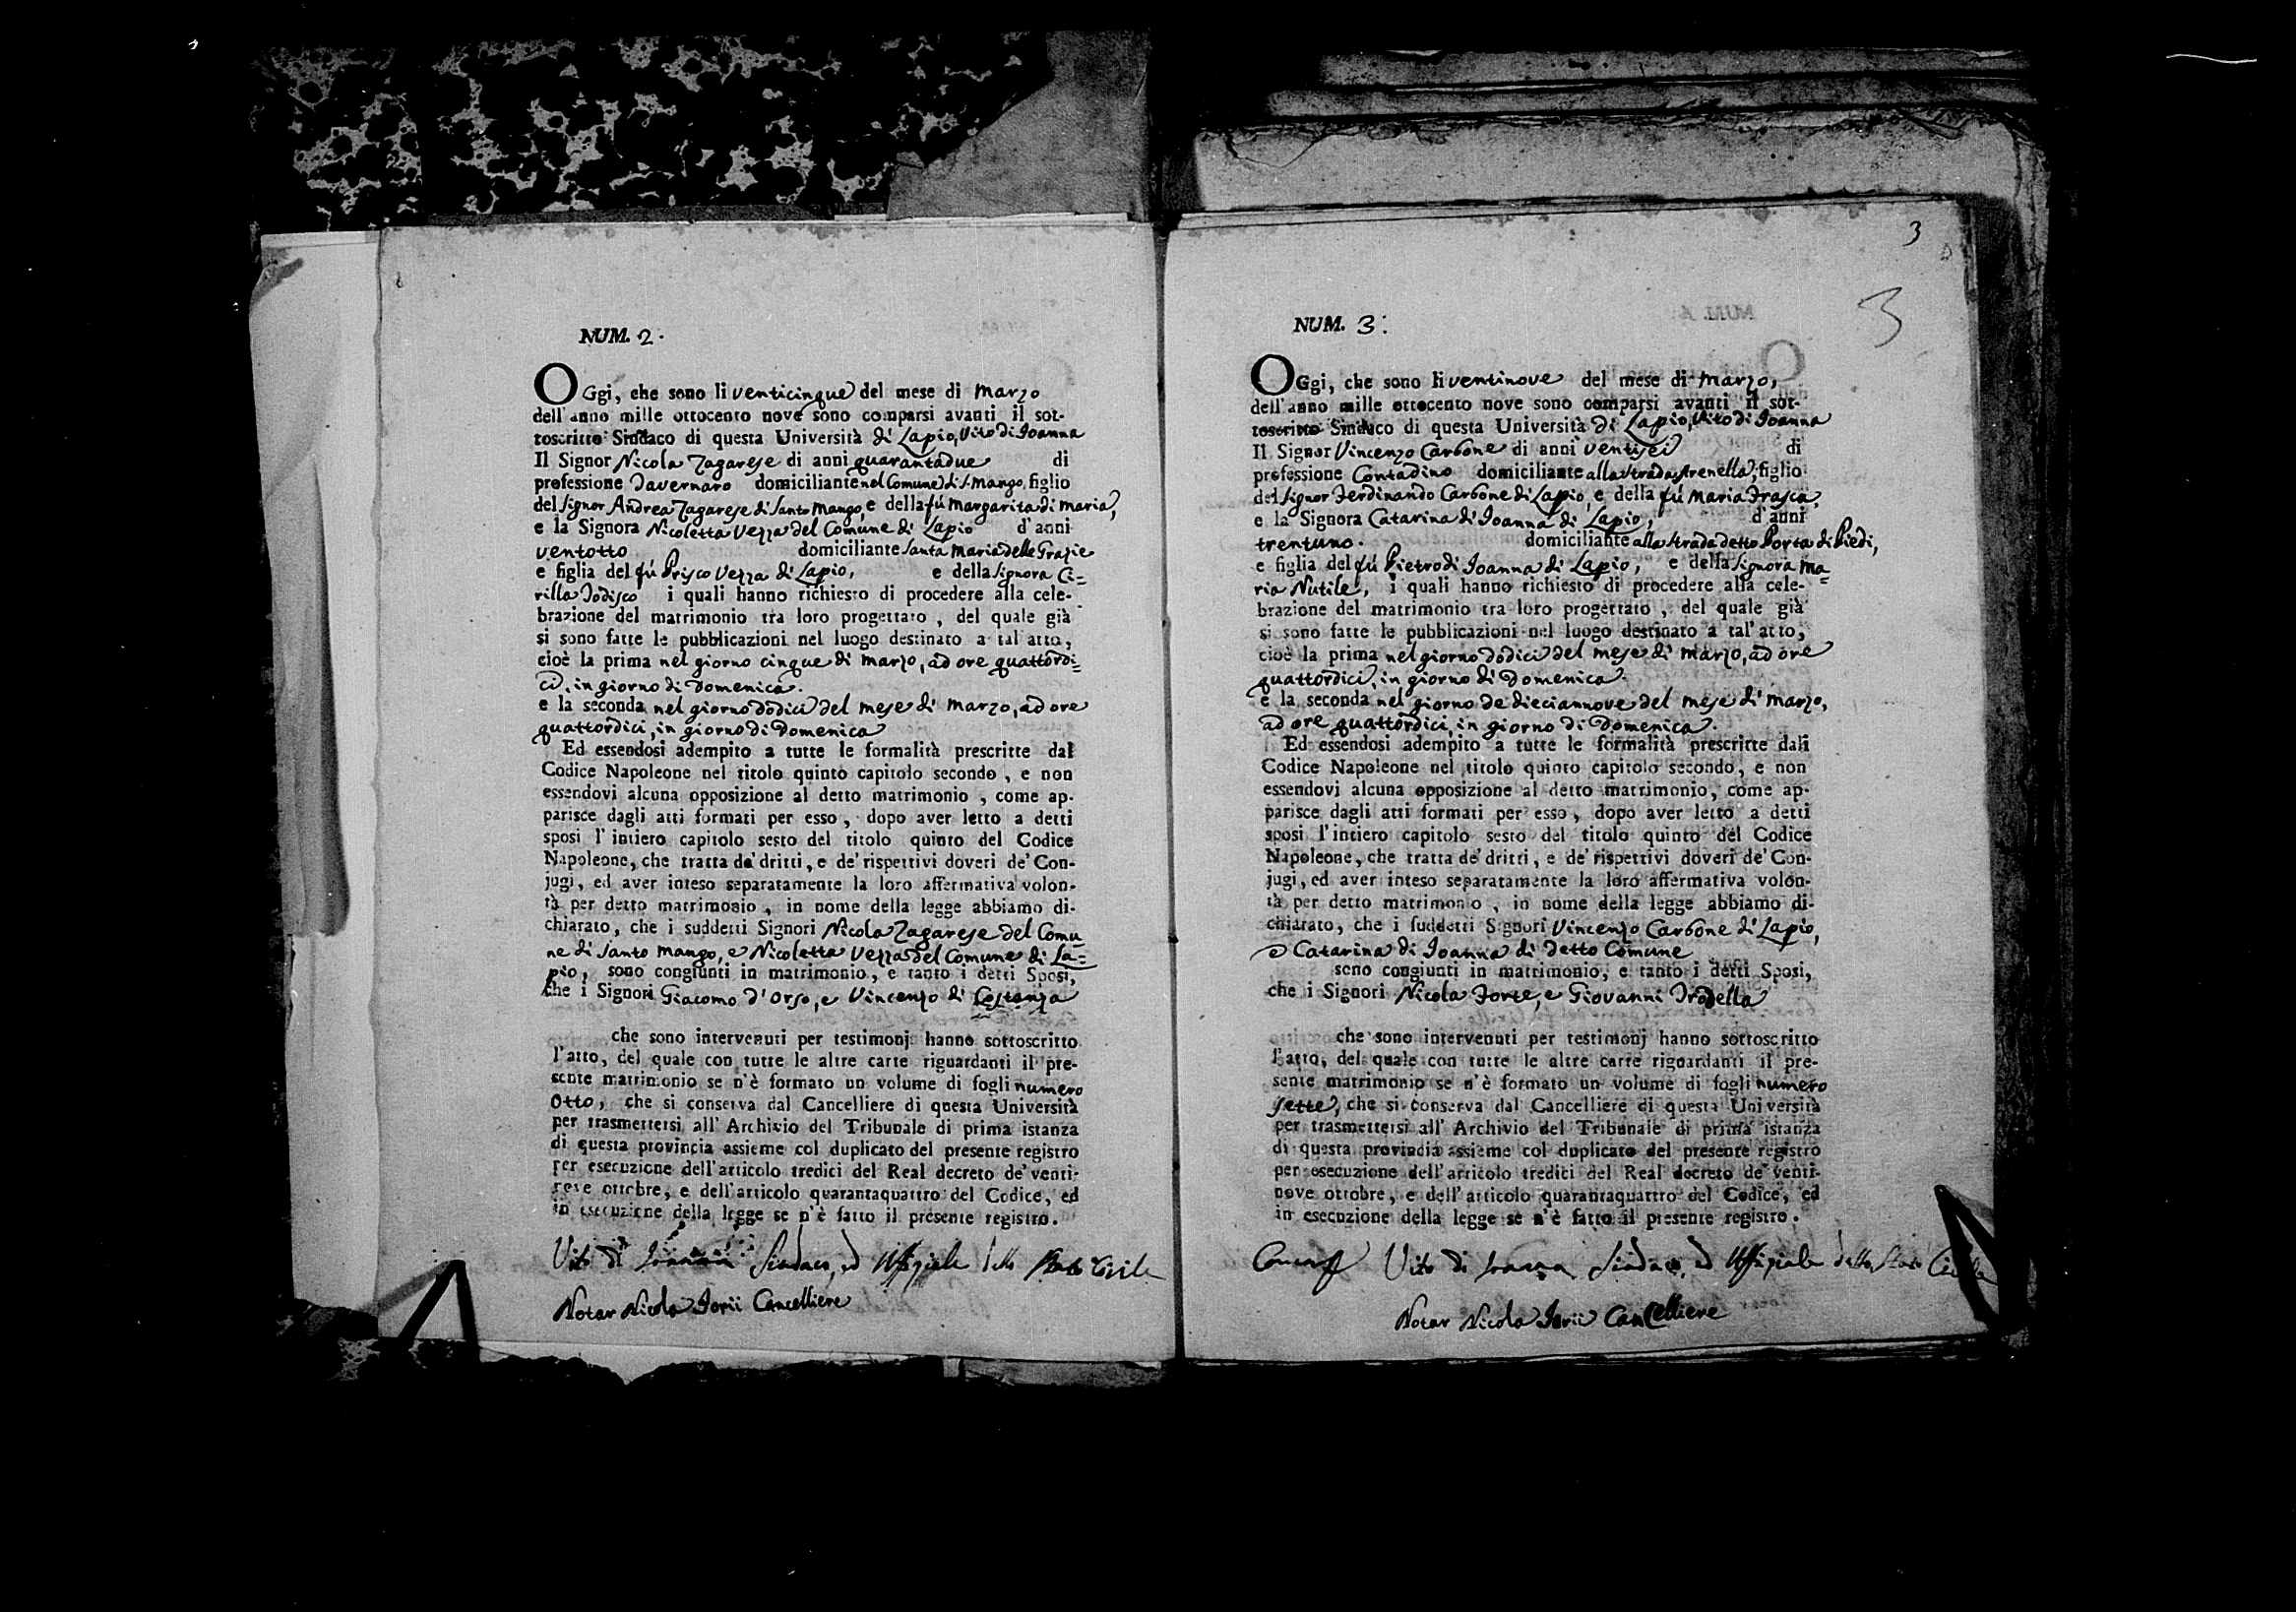 NUM. 2.
OGgi, che sono li venticinque del mese di Marzo
dell'anno mille ottocento nove sono comparsi avanti il sot-
toscritto Sindaco di questa Università di Lapio, Vito di Joanna
Il Signor Nicola Zagarese di anni quarantadue di
professione Tavernaro domiciliante nel Comune di S. Mango, figlio
del Signor Andrea Zagarese di Santo Mango, e della fú Margarita di Maria,
e la Signora Nicoletta Vezza del Comune di Lapio d'anni
ventotto domiciliante Santa Maria delle Grazie
e figlia del fú Prisco Vezza di Lapio, e della Signora Ci=
rilla Jodisco i quali hanno richiesto di procedere alla cele-
brazione del matrimonio tra loro progettato, del quale già
si sono fatte le pubblicazioni nel luogo destinato a tal'atto,
cioè la prima nel giorno cinque di Marzo, ad ore quattordi=
ci, in giorno di Domenica.
e la seconda nel giorno dodici del mese di Marzo, ad ore
quattordici, in giorno di Domenica
Ed essendosi adempito a tutte le formalità prescritte dal
Codice Napoleone nel titolo quinto capitolo secondo, e non
essendovi alcuna opposizione al detto matrimonio, come ap-
parisce dagli atti formati per esso, dopo aver letto a detti
sposi l'intiero capitolo sesto del titolo quinto del Codice
Napoleone, che tratta de' dritti, e de' rispettivi doveri de' Con-
jugi, ed aver inteso separatamente la loro affermativa volon-
tà per detto matrimonio, in nome della legge abbiamo di-
chiarato, che i suddetti Signori Nicola Zagarese del Comu
ne di Santo Mango, e Nicoletta Vezza del Comune di La=
pio, sono congiunti in matrimonio, e tanto i detti Sposi,
che i Signori Giacomo d'Orso, e Vincenzo di Costanza
che sono intervenuti per testimonj hanno sottoscritto
l'atto, del quale con tutte le altre carte riguardanti il pre-
sente matrimonio se n'è formato un volume di fogli numero
otto, che si conserva dal Cancelliere di questa Università
per trasmettersi all'Archivio del Tribunale di prima istanza
di questa provincia assieme col duplicato del presente registro
per esecuzione dell'articolo tredici del Real decreto de' venti-
nove ottobre, e dell'articolo quarantaquattro del Codice, ed
in esecuzione della legge se n'è fatto il presente registro.
Vito di Joanna Sindaco, ed Uffiziale dello Stato Civile
Notar Nicola Jorii Cancelliere
3
3
NUM. 3.
OGgi, che sono li ventinove del mese di Marzo,
dell'anno mille ottocento nove sono comparsi avanti il sot-
toscritto Sindaco di questa Università di Lapio, Vito di Joanna
Il Signor Vincenzo Carbone di anni ventisei di
professione Contadino domiciliante alla strada Arenella, figlio
del Signor Ferdinando Carbone di Lapio, e della fú Maria Frasca,
e la Signora Catarina di Joanna di Lapio, d'anni
trentuno. domiciliante alla strada detto Porta di Piedi,
e figlia del fú Pietro di Joanna di Lapio, e della Signora Ma=
ria Nutile, i quali hanno richiesto di procedere alla cele-
brazione del matrimonio tra loro progettato, del quale già
si sono fatte le pubblicazioni nel luogo destinato a tal'atto,
cioè la prima nel giorno dodici del mese di Marzo, ad ore
quattordici, in giorno di Domenica.
e la seconda nel giorno de dieciannove del mese di Marzo,
ad ore quattordici, in giorno di Domenica.
Ed essendosi adempito a tutte le formalità prescritte dali
Codice Napoleone nel titolo quinto capitolo secondo, e non
essendovi alcuna opposizione al detto matrimonio, come ap-
parisce dagli atti formati per esso, dopo aver letto a detti
sposi l'intiero capitolo sesto del titolo quinto del Codice
Napoleone, che tratta de' dritti, e de' rispettivi doveri de' Con-
jugi, ed aver inteso separatamente la loro affermativa volon-
tà per detto matrimonio, in nome della legge abbiamo di-
chiarato, che i suddetti Signori Vincenzo Carbone di Lapio,
e Catarina di Joanna di detto Comune
sono congiunti in matrimonio, e tanto i detti Sposi,
che i Signori Nicola Forte, e Giovanni Trodella
che sono intervenuti per testimonj hanno sottoscritto
l'atto, del quale con tutte le altre carte riguardanti il pre-
sente matrimonio se n'è formato un volume di fogli numero
sette, che si conserva dal Cancelliere di questa Università
per trasmettersi all'Archivio del Tribunale di prima istanza
di questa provincia assieme col duplicato del presente registro
per esecuzione dell'articolo tredici del Real decreto de' venti-
nove ottobre, e dell'articolo quarantaquattro del Codice, ed
in esecuzione della legge se n'è fatto il presente registro.
Vito di Joanna Sindaco, ed Uffiziale dello Stato Civile
Notar Nicola Jorii Cancelliere